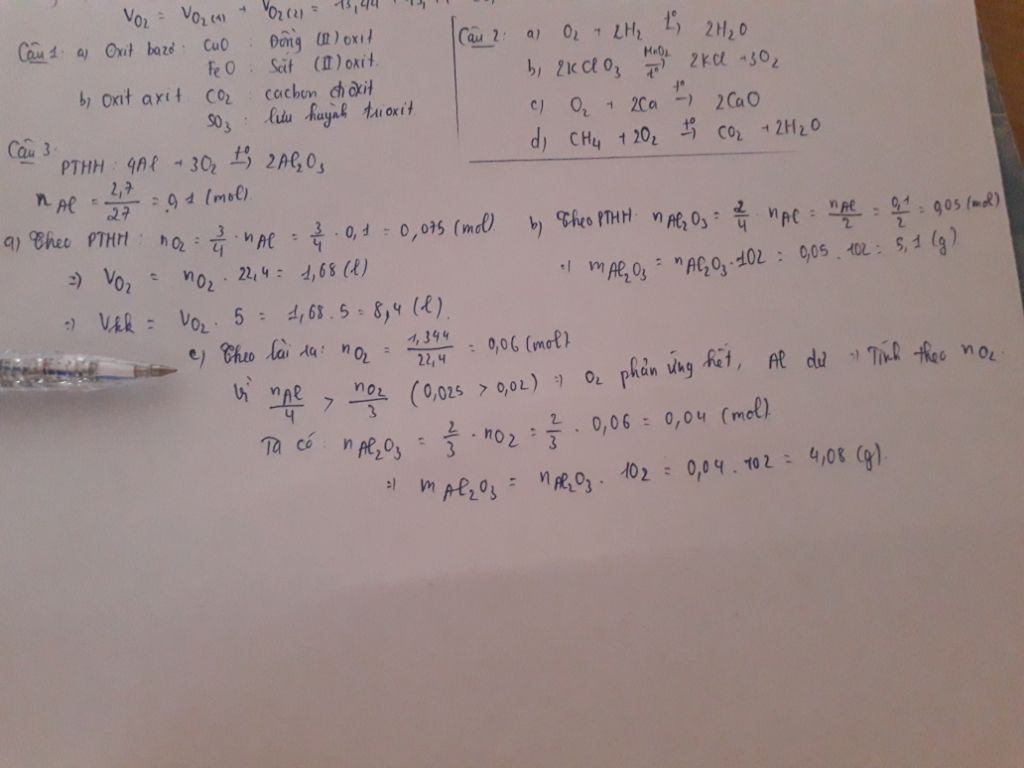 V O₂ = V O₂(1) + V O₂(2) = 13,44 +
Câu 1: a) Oxit bazơ: CuO : Đồng (II) oxit
FeO : Sắt (II) oxit.
b) Oxit axit CO₂ : cacbon đioxit
SO₃ : lưu huỳnh trioxit
Câu 2: a) O₂ + 2H₂ t°→ 2H₂O
b, 2KClO₃ MnO₂ t°→ 2KCl + 3O₂
c) O₂ + 2Ca t°→ 2CaO
d) CH₄ + 2O₂ t°→ CO₂ + 2H₂O
Câu 3:
PTHH : 4Al + 3O₂ t°→ 2Al₂O₃
n Al = 2,7/27 = 0,1 (mol)
a) Theo PTHH : nO₂ = 3/4 . nAl = 3/4 . 0,1 = 0,075 (mol)
=) VO₂ = nO₂ . 22,4 = 1,68 (l)
=) Vkk = VO₂ . 5 = 1,68 . 5 = 8,4 (l).
b) Theo PTHH: nAl₂O₃ = 2/4 . nAl = nAl/2 = 0,1/2 = 0,05 (mol)
=) mAl₂O₃ = nAl₂O₃ . 102 = 0,05 . 102 = 5,1 (g)
c) Theo bài ra: nO₂ = 1,344/22,4 = 0,06 (mol)
Vì nAl/4 > nO₂/3 (0,025 > 0,02) =) O₂ phản ứng hết, Al dư =) Tính theo nO₂.
Ta có: nAl₂O₃ = 2/3 . nO₂ = 2/3 . 0,06 = 0,04 (mol)
=) mAl₂O₃ = nAl₂O₃ . 102 = 0,04 . 102 = 4,08 (g).